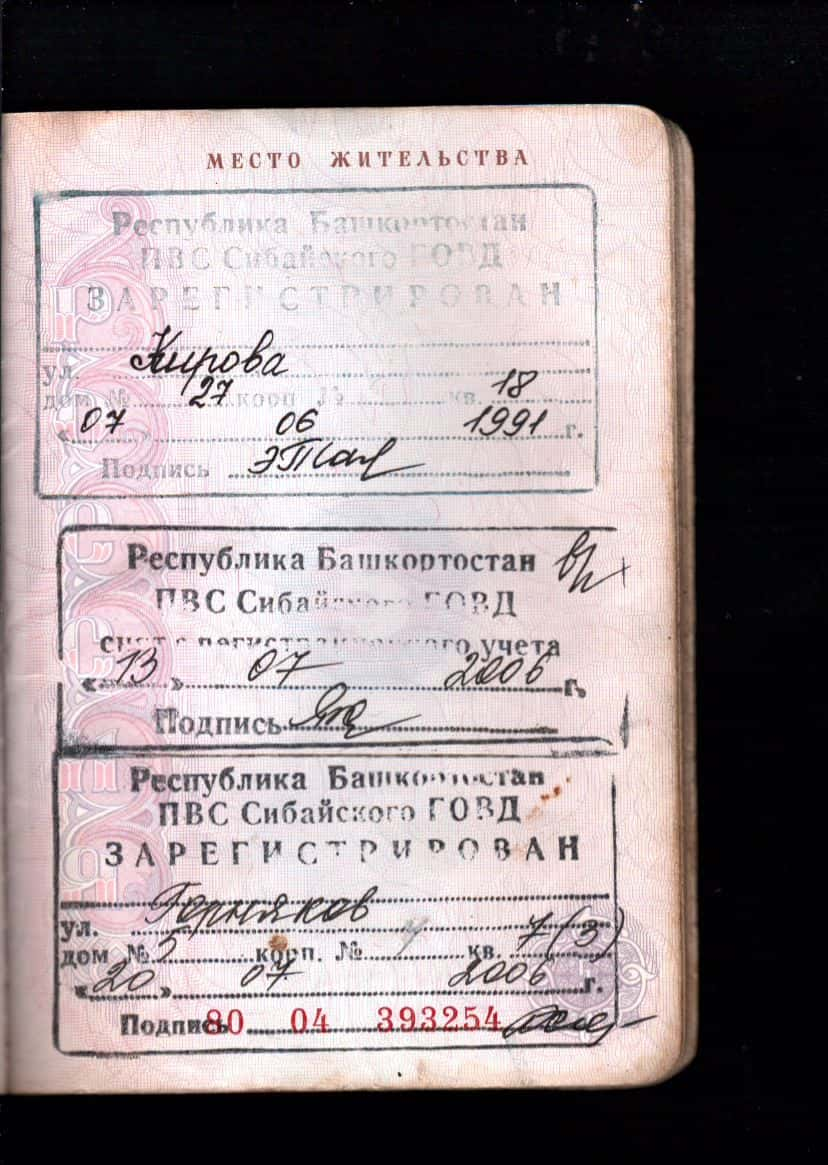 МЕСТО ЖИТЕЛЬСТВА
Республика Башкортостан
ПВС Сибайского ГОВД
ЗАРЕГИСТРИРОВАН
ул. Кирова
дом № 27 корп № кв. 18
« 07 » 06 1991 г.
Подпись
Республика Башкортостан
ПВС Сибайского ГОВД
снят с регистрационного учета
« 13 » 07 2006 г.
Подпись
Республика Башкортостан
ПВС Сибайского ГОВД
ЗАРЕГИСТРИРОВАН
ул. Горняков
дом № 5 корп. № кв. 7 (3)
« 20 » 07 2006 г.
Подпись 80 04 393254